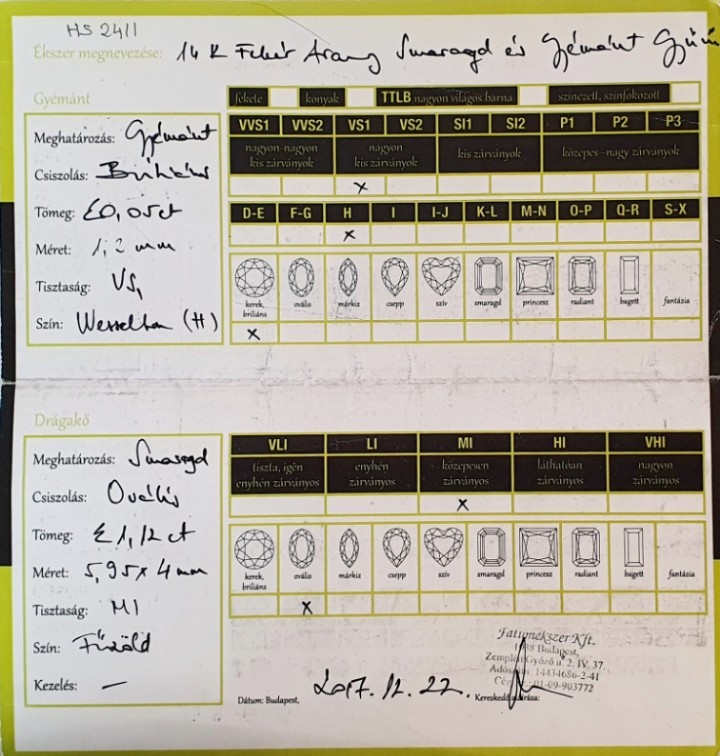 HS 2411
Ékszer megnevezése: 14 K Fehér Arany Smaragd és Gyémánt Gyűrű
Gyémánt
fekete konyak TTLB nagyon világos barna színezett, színfokozott
Meghatározás: Gyémánt
Csiszolás: Briliáns
Tömeg: Σ0,05ct
Méret: 1,2 mm
Tisztaság: VS1
Szín: Wesselton (H)
VVS1 VVS2 VS1 VS2 SI1 SI2 P1 P2 P3
nagyon-nagyon kis zárványok nagyon kis zárványok kis zárványok közepes-nagy zárványok
x
D-E F-G H I I-J K-L M-N O-P Q-R S-X
x
kerek, briliáns ovális márkiz csepp szív smaragd princess radiant bagett fantázia
x
Drágakő
Meghatározás: Smaragd
Csiszolás: Ovális
Tömeg: Σ1,12 ct
Méret: 5,95x4 mm
Tisztaság: MI
Szín: Fűzöld
Kezelés: —
VLI LI MI HI VHI
tiszta, igen enyhén zárványos enyhén zárványos közepesen zárványos láthatóan zárványos nagyon zárványos
x
kerek, briliáns ovális márkiz csepp szív smaragd princess radiant bagett fantázia
x
Fatumékszer Kft.
Budapest,
Zemplén Győző u. 2. IV. 37.
14434686-2-41
01-09-903772
Dátum: Budapest, 2017. 12. 22. Kereskedő aláírása: